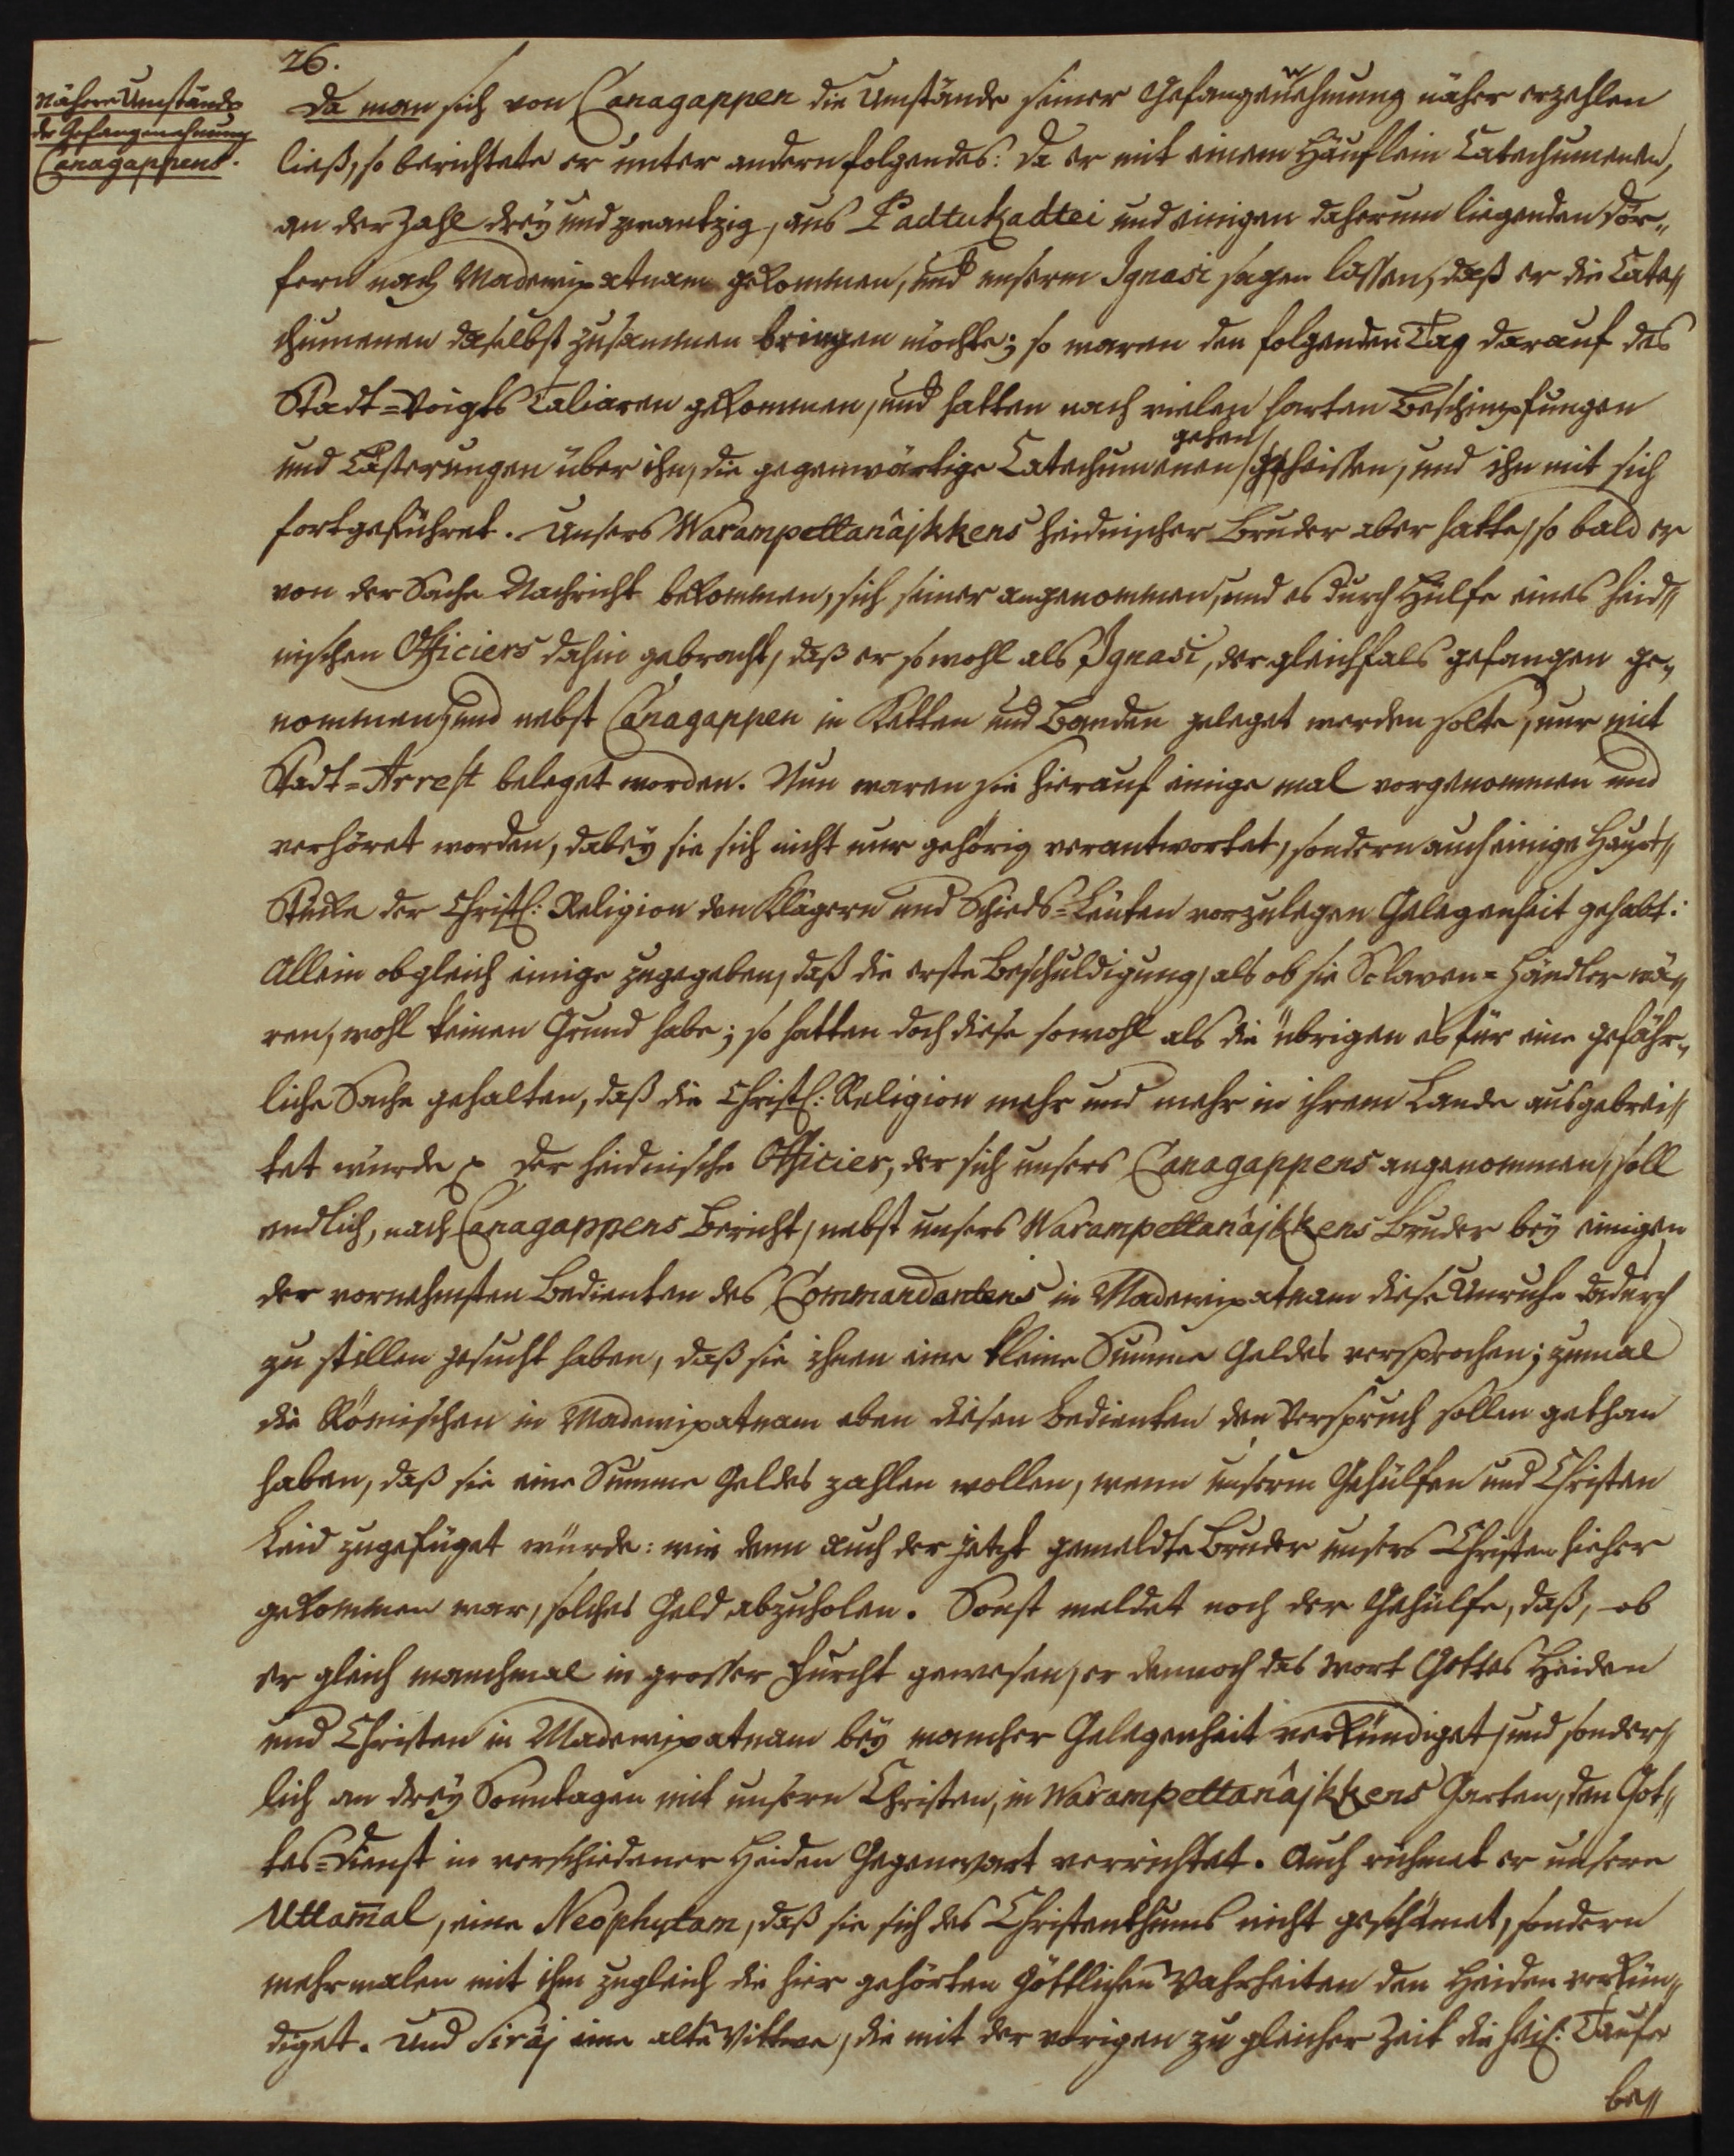 26.
Nähere Umstände
der Gefangennehmung
Canagappens.
Da man sich von Canagappen die Umstände seiner Gefangennehmung näher erzehlen
ließ, so berichtete er unter andern folgendes: Da er mit einem Häuflein Catechumenen,
an der Zahl drey und zwantzig, aus Padtukadtei und einigen daherum liegenden Dör„
fern nach Madewipatnam gekommen, und unserm Ignasi sagen lassen, daß er die Cate„
chumenen daselbst zusammen bringen möchte; so waren den folgenden Tag darauf des
Stadt=Voigts Taliaren gekommen, und hatten nach vielen harten Beschimpfungen
und Lästerungen über ihn, die gegenwärtige Catechumenen gehen geheissen, und ihn mit sich
fortgeführet. Unsers Warampettanâjkkens heidnischer Bruder aber hatte, so bald er
von der Sache Nachricht bekommen, sich seiner angenommen, und es durch Hülfe eines heid„
nischen Officiers dahin gebracht, daß er sowohl als Ignasi, der gleichfals gefangen ge„
nommen, und nebst Canagappen in Ketten und Banden geleget werden solte, nur mit
Stadt=Arrest beleget worden. Nun waren sie hierauf einige mal vorgenommen und
verhöret worden, dabey sie sich nicht nur gehörig verantwortet, sondern auch einige Haupt„
Stücke der Christl: Religion den Klägern und Schieds=Leuten vorzulegen Gelegenheit gehabt:
Allein obgleich einige zugegeben, daß die erste Beschuldigung, als ob sie Sclaven=Händler wä„
ren, wohl keinen Grund habe; so hatten doch diese sowohl als die übrigen es für eine gefähr„
liche Sache gehalten, daß die Christl: Religion mehr und mehr in ihrem Lande ausgebrei„
tet würde. Der heidnische Officier, der sich unsers Canagappens angenommen, soll
endlich, nach Canagappens Bericht, nebst unsers Warampettanâjkkens Bruder bey einigen
der vornehmsten Bedienten des Commandantens in Madewipatnam diese Unruhe dadurch
zu stillen gesucht haben, daß sie ihnen eine kleine Summe Geldes versprochen; zumal
die Römischen in Madewipatnam eben diesen Bedienten den Verspruch sollen gethan
haben, daß sie eine Summe Geldes zahlen wollen, wenn unserm Gehülfen und Christen
Leid zugefüget würde: wie denn auch der jetzt gemeldte Bruder unsers Christen hieher
gekommen war, solches Geld abzuholen. Sonst meldet noch der Gehülfe, daß, ob
er gleich manchmal in grosser Furcht gewesen, er dennoch das Wort Gottes Heiden
und Christen in Madewipatnam bey mancher Gelegenheit verkündiget, und sonder„
lich an drey Sonntagen mit unsern Christen, in Warampettanâjkkens Garten, den Got„
tes=Dienst in verschiedener Heiden Gegenwart verrichtet. Auch rühmet er unsere
Uttam̄al, eine Neophytam, daß sie sich des Christenthums nicht geschämet, sondern
mehrmalen mit ihm zugleich die hier gehörten Göttlichen Wahrheiten den Heiden verkün„
diget. Und Siràj eine alte Wittwe, die mit der vorigen zu gleicher Zeit die heil: Taufe
be„